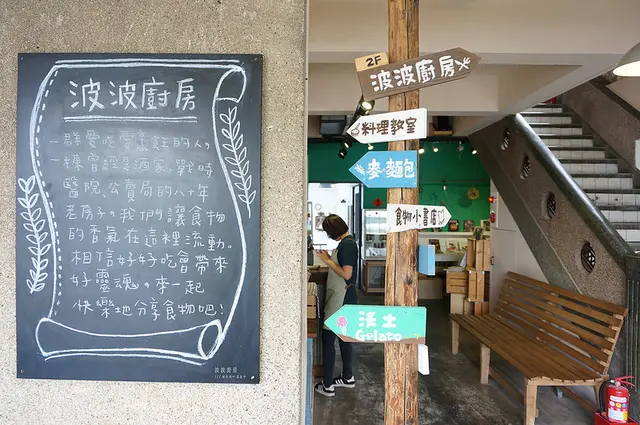 波波廚房
一群愛吃愛烹飪的人,
一棟曾經是酒家、戰時
醫院、公賣局的八十年
老房子。我們讓食物
的香氣在這裡流動。
相信好好吃會帶來
好靈魂。來一起
快樂地分享食物吧!
波波廚房
2F
波波廚房
料理教室
麥麵包
食物小書店
沃土
Gelato